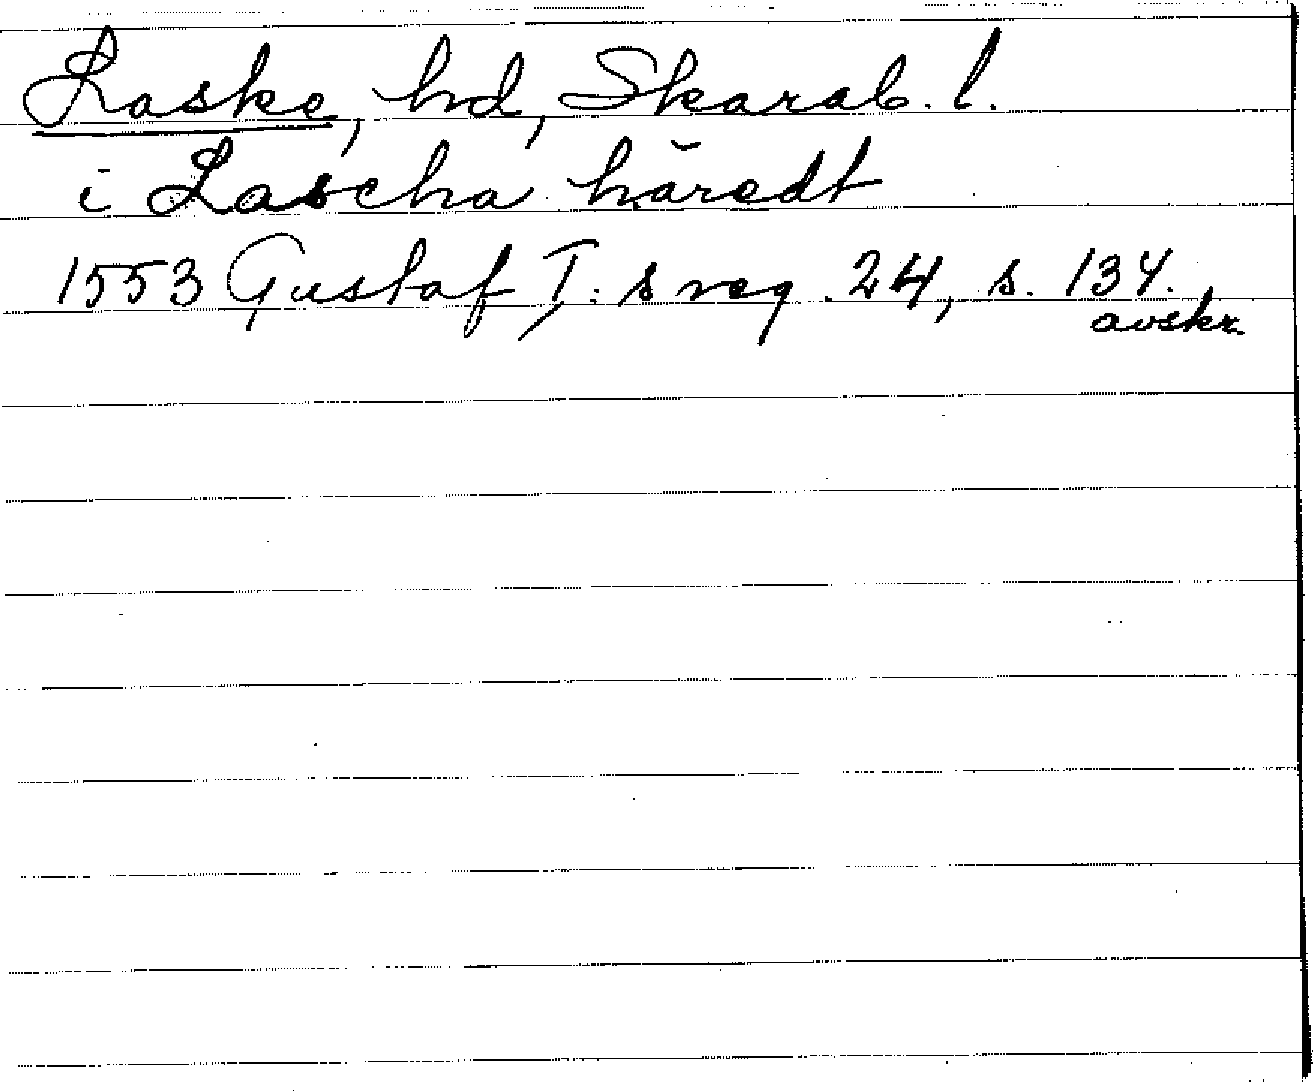 Laske, hd, Skarab. l.
i Lascha häredt
1553 Gustaf I:s reg. 24, s. 134.
avskr.